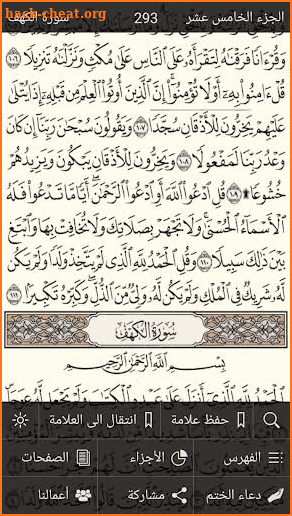 الجزء الخامس عشر 293 سورة الكهف
وَقُرْءَانًا فَرَقْنَٰهُ لِتَقْرَأَهُۥ عَلَى ٱلنَّاسِ عَلَىٰ مُكْثٍ وَنَزَّلْنَٰهُ تَنزِيلًا ١٠٦
قُلْ ءَامِنُوا۟ بِهِۦٓ أَوْ لَا تُؤْمِنُوٓا۟ إِنَّ ٱلَّذِينَ أُوتُوا۟ ٱلْعِلْمَ مِن قَبْلِهِۦٓ إِذَا يُتْلَىٰ
عَلَيْهِمْ يَخِرُّونَ لِلْأَذْقَانِ سُجَّدًا ١٠٧ وَيَقُولُونَ سُبْحَٰنَ رَبِّنَآ إِن كَانَ
وَعْدُ رَبِّنَا لَمَفْعُولًا ١٠٨ وَيَخِرُّونَ لِلْأَذْقَانِ يَبْكُونَ وَيَزِيدُهُمْ
خُشُوعًا ۩ ١٠٩ قُلِ ٱدْعُوا۟ ٱللَّهَ أَوِ ٱدْعُوا۟ ٱلرَّحْمَٰنَ أَيًّا مَّا تَدْعُوا۟ فَلَهُ
ٱلْأَسْمَآءُ ٱلْحُسْنَىٰ وَلَا تَجْهَرْ بِصَلَاتِكَ وَلَا تُخَافِتْ بِهَا وَٱبْتَغِ
بَيْنَ ذَٰلِكَ سَبِيلًا ١١٠ وَقُلِ ٱلْحَمْدُ لِلَّهِ ٱلَّذِى لَمْ يَتَّخِذْ وَلَدًا وَلَمْ يَكُن
لَّهُۥ شَرِيكٌ فِى ٱلْمُلْكِ وَلَمْ يَكُن لَّهُۥ وَلِىٌّ مِّنَ ٱلذُّلِّ وَكَبِّرْهُ تَكْبِيرًۢا ١١١
سُورَةُ الكَهْفِ
بِسْمِ ٱللَّهِ ٱلرَّحْمَٰنِ ٱلرَّحِيمِ
ٱلْحَمْدُ لِلَّهِ ٱلَّذِىٓ أَنزَلَ عَلَىٰ عَبْدِهِ ٱلْكِتَٰبَ وَلَمْ يَجْعَل لَّهُۥ عِوَجَا
حفظ علامة انتقال الى العلامة
الفهرس الأجزاء الصفحات
دعاء الختم مشاركة أعمالنا